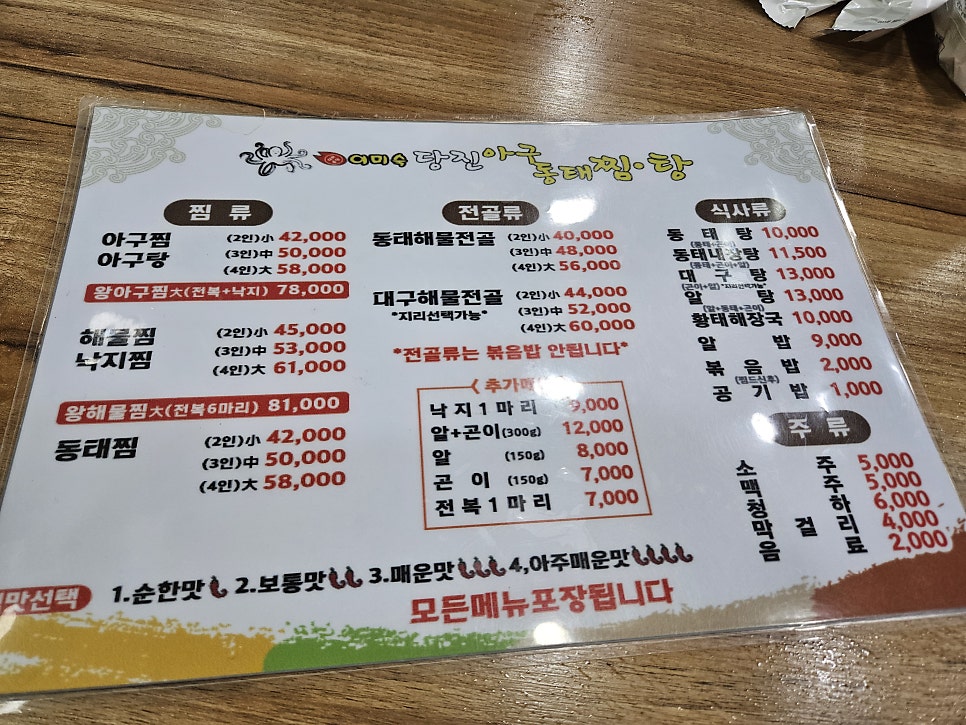 어미수 당진아구
동태찜·탕
찜 류
아구찜 (2인)小 42,000
아구탕 (3인)中 50,000
(4인)大 58,000
왕아구찜大(전복+낙지) 78,000
해물찜 (2인)小 45,000
낙지찜 (3인)中 53,000
(4인)大 61,000
왕해물찜大(전복6마리) 81,000
동태찜 (2인)小 42,000
(3인)中 50,000
(4인)大 58,000
전골류
동태해물전골 (2인)小 40,000
(3인)中 48,000
(4인)大 56,000
대구해물전골 (2인)小 44,000
*지리선택가능* (3인)中 52,000
(4인)大 60,000
*전골류는 볶음밥 안됩니다*
< 추가메
낙지1마리 9,000
알+곤이(300g) 12,000
알 (150g) 8,000
곤이 (150g) 7,000
전복1마리 7,000
식사류
동태탕 10,000
(동태+곤이)
동태내장탕 11,500
(동태+곤이+알)
대구탕 13,000
(곤이+알)*지리선택가능*
알탕 13,000
(알+동태+곤이)
황태해장국 10,000
알밥 9,000
볶음밥 2,000
(찜드신후)
공기밥 1,000
주류
소주 5,000
맥주 5,000
청하 6,000
막걸리 4,000
음료 2,000
맛선택 1.순한맛 2.보통맛 3.매운맛 4,아주매운맛
모든메뉴포장됩니다